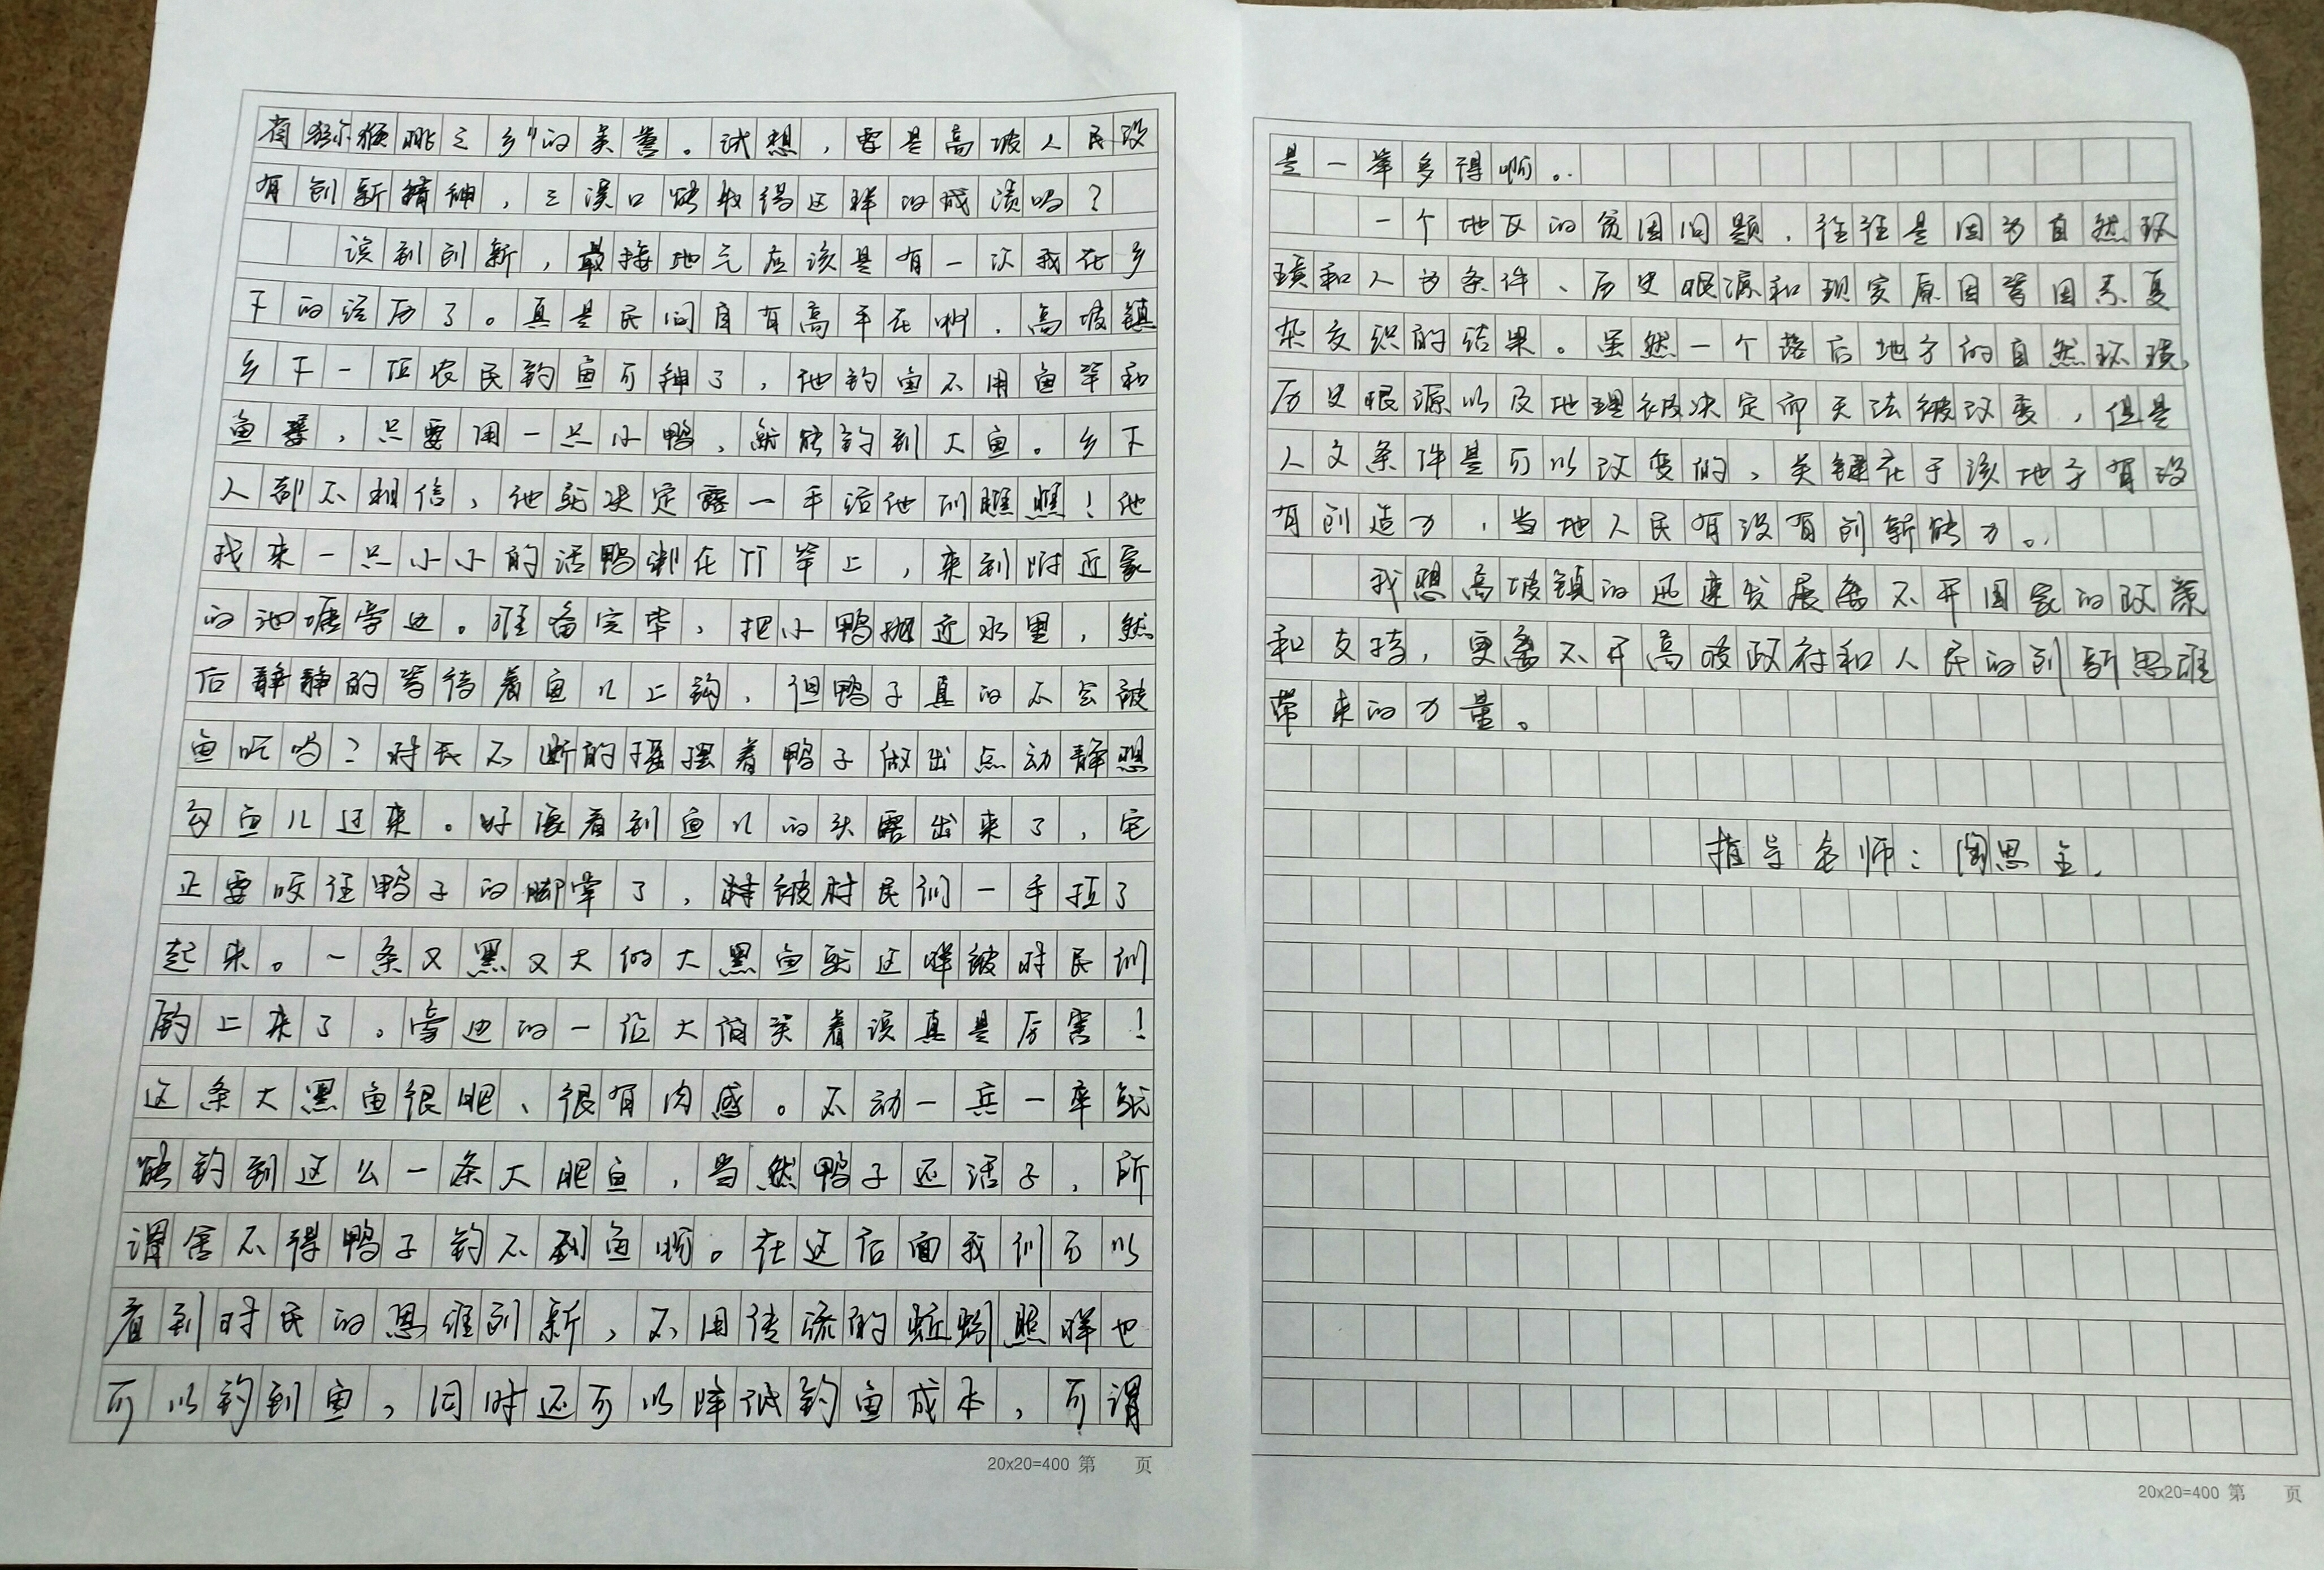 有猕猴桃之乡"的美誉。试想，要是高坡人民没
有创新精神，三溪口能取得这样的成渍吗？
谈到创新，最接地元应该是有一次我在乡
下的经历了。真是民间自有高手在啊，高坡镇
乡下一位农民钓鱼可神了，他钓鱼不用鱼竿和
鱼饵，只要用一只小鸭，就能钓到大鱼。乡下
人都不相信，他就决定露一手给他们瞧瞧！他
找来一只小小的活鸭绑在竹竿上，来到附近家
的池塘旁边。准备完毕，把小鸭抛近水里，然
后静静的等待着鱼儿上钩，但鸭子真的不会被
鱼吃吗？村民不断的摇摆着鸭子做出点动静想
勾鱼儿过来。好像看到鱼儿的头露出来了，它
正要咬住鸭子的脚掌了，村被村民们一手拉了
起来。一条又黑又大的大黑鱼就这样被村民们
钓上来了。旁边的一位大伯笑着说真是厉害！
这条大黑鱼很肥、很有肉感。不动一兵一卒就
能钓到这么一条大肥鱼，当然鸭子还活了，所
谓舍不得鸭子钓不到鱼啊。在这后面我们可以
看到村民的思维创新，不用传统的蚯蚓照样也
可以钓到鱼，同时还可以降低钓鱼成本，可谓
20x20=400 第 页
是一举多得啊。
一个地区的贫困问题，往往是因为自然环
境和人为条件、历史根源和现实原因等因素复
杂交织的结果。虽然一个落后地方的自然环境，
历史根源以及地理被决定而无法被改变，但是
人文条件是可以改变的，关键在于该地方有没
有创造力，当地人民有没有创新能力。
我想高坡镇的迅速发展离不开国家的政策
和支持，更离不开高坡政府和人民的创新思维
带来的力量。
指导老师：陶思全
20x20=400 第 页